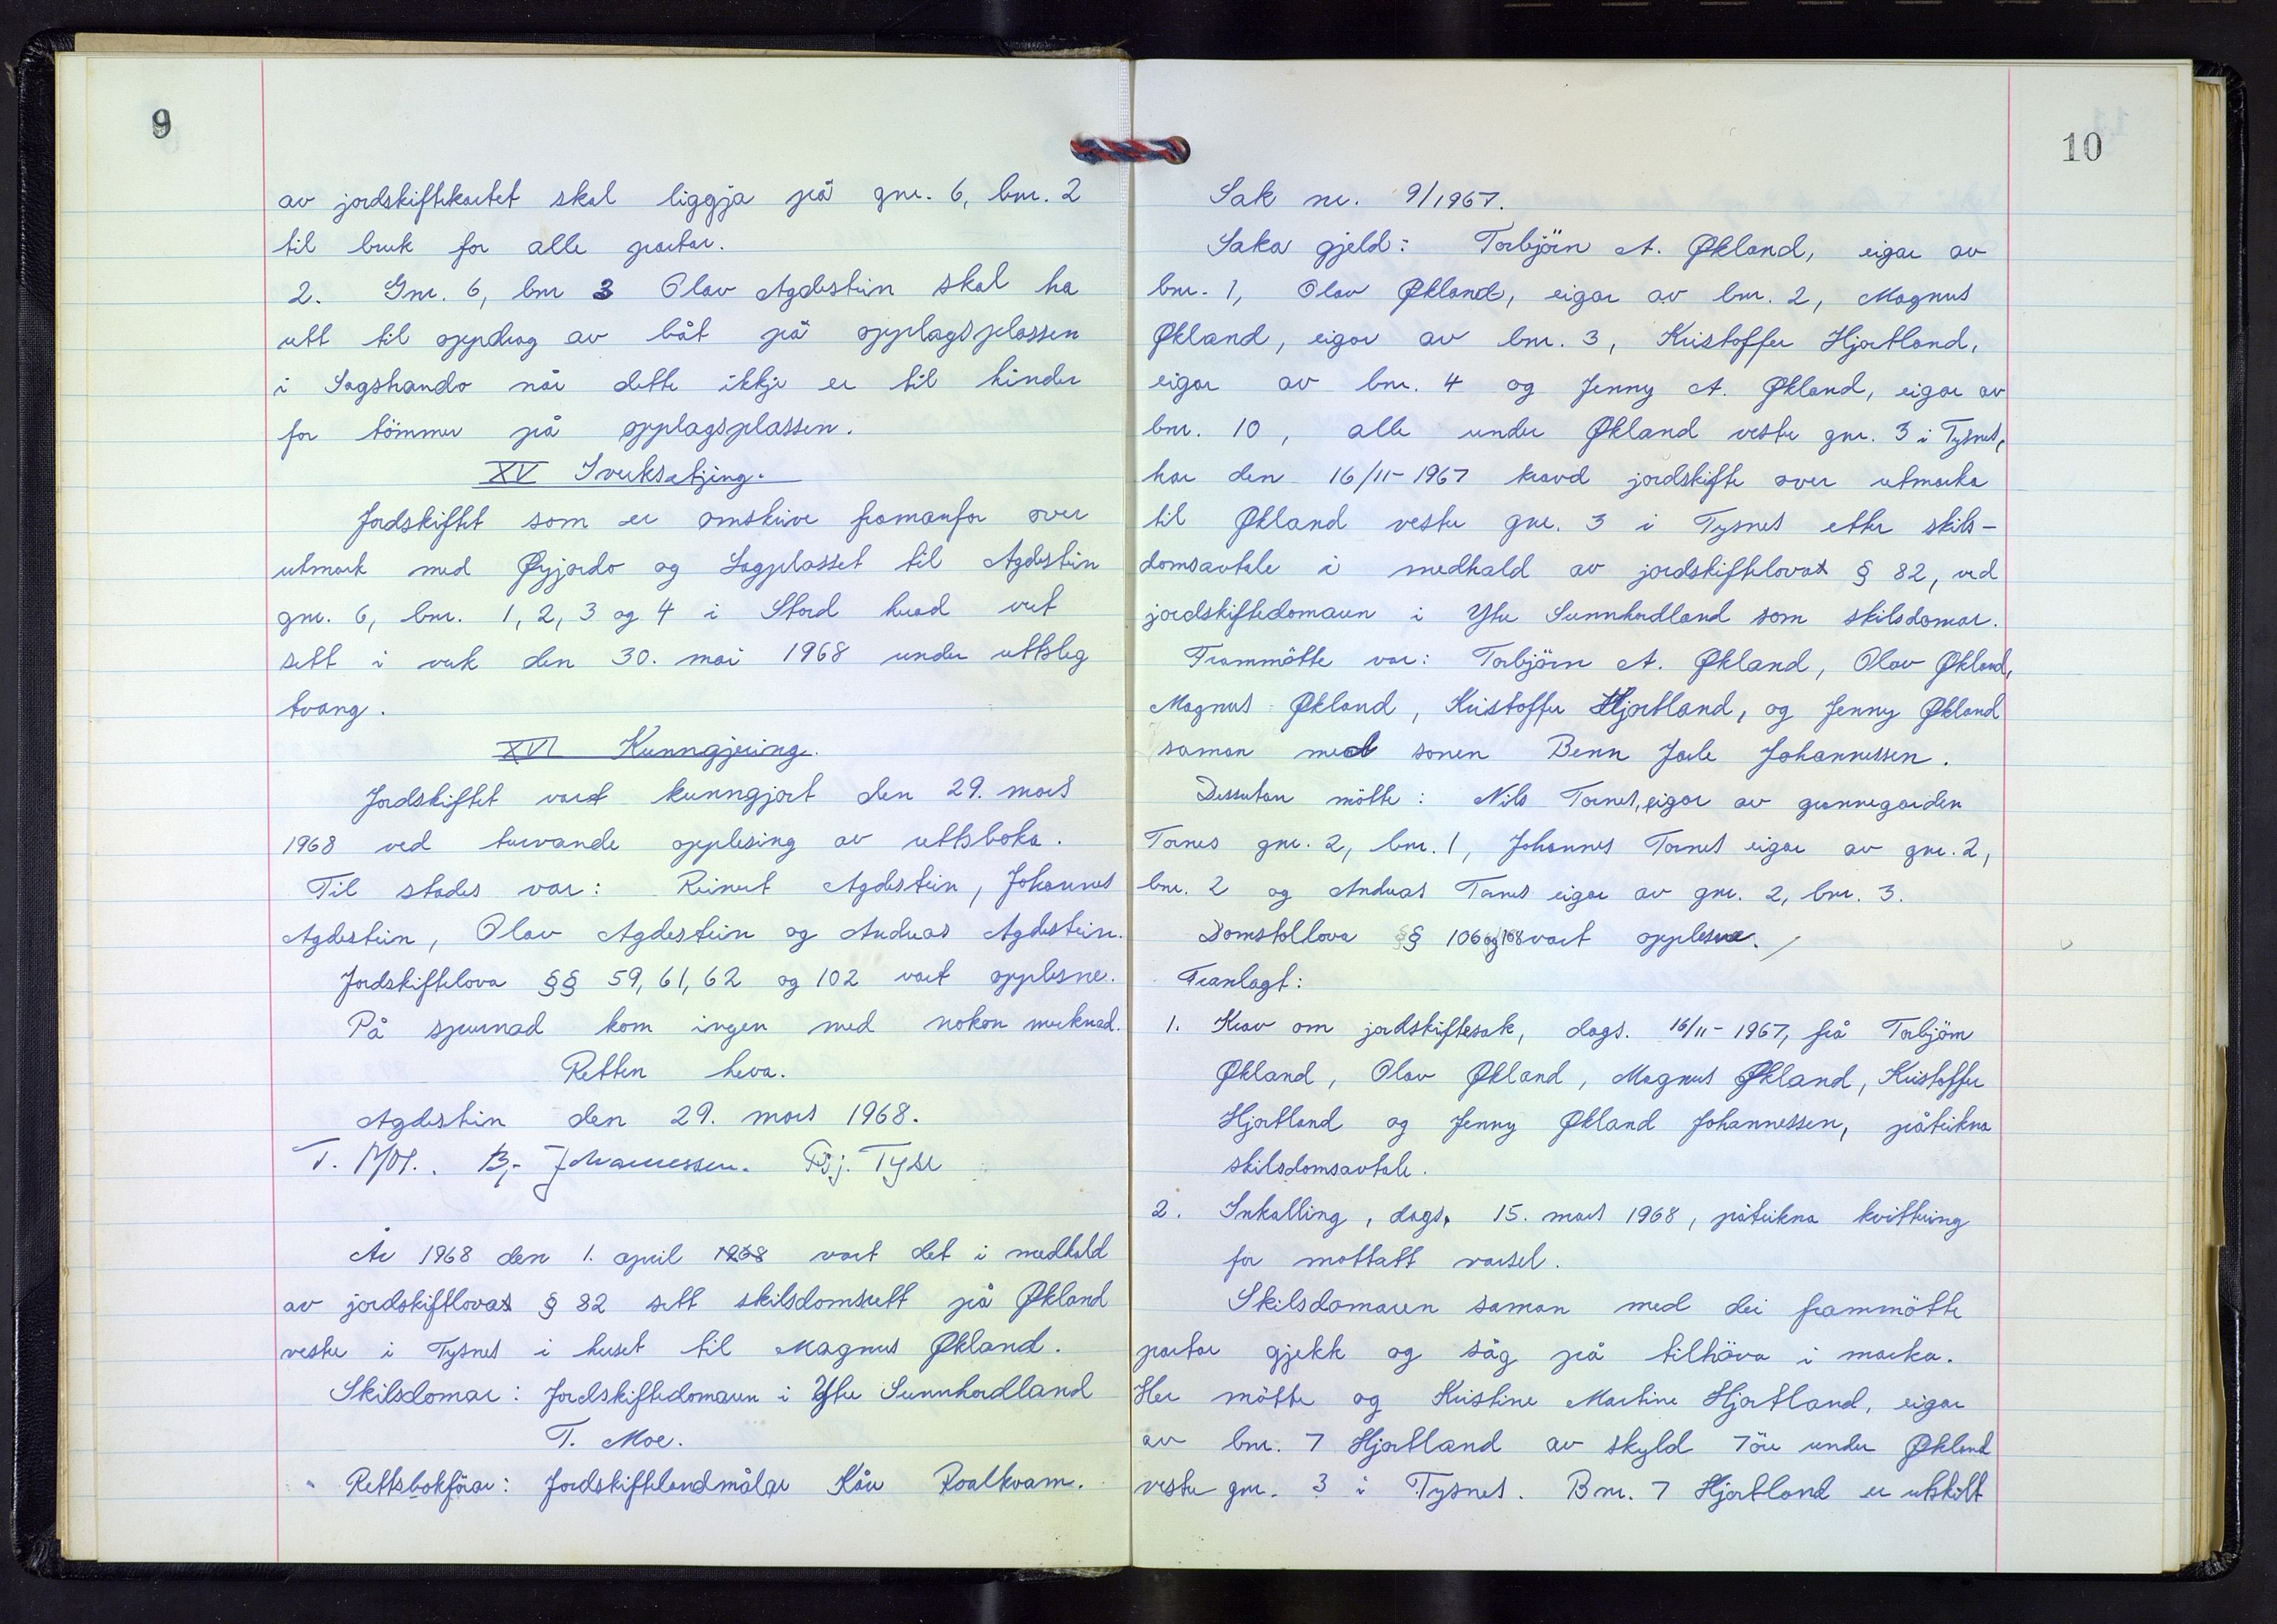 9
av jordskiftekartet skal liggja på gnr. 6, bnr. 2
til bruk for alle partar.
2. Gnr. 6, bnr 3 Olav Agdestein skal ha
rett til oppdrag av båt på opplagsplassen
i Sagshando når dette ikkje er til hinder
for tömmer på opplagsplassen.
XV Iverksetjing.
Jordskiftet som er omskrive framanfor over
utmark med Øyjordo og Sagplasset til Agdestein
gnr. 6, bnr. 1, 2, 3 og 4 i Stord herad vert
sett i verk den 30. mai 1968 under rettsleg
tvang.
XVI Kunngjering.
Jordskiftet vart kunngjort den 29. mars
1968 ved turvande opplesing av rettsboka.
Til stades var: Reinert Agdestein, Johannes
Agdestein, Olav Agdestein og Andreas Agdestein.
Jordskiftelova §§ 59, 61, 62 og 102 vart opplesne.
På spurnad kom ingen med nokon merknad.
Retten heva.
Agdestein den 29. mars 1968.
T. Moe. B. Johannessen. Tyse
År 1968 den 1. april 1968 vart det i medhald
av jordskiftlovas § 82 sett skilsdomsrett på Økland
vestre i Tysnes i huset til Magnus Økland.
Skilsdomar: Jordskiftedomaren i Ytre Sunnhordland
T. Moe.
Rettsbokförar: Jordskiftelandmålar Kåre Roalkvam.
10
Sak nr. 9/1967.
Saka gjeld: Torbjörn A. Økland, eigar av
bnr. 1, Olav Økland, eigar av bnr. 2, Magnus
Økland, eigar av bnr. 3, Kristoffer Hjortland,
eigar av bnr. 4 og Jenny A. Økland, eigar av
bnr. 10, alle under Økland vestre gnr. 3 i Tysnes,
har den 16/11-1967 kravd jordskifte over utmarka
til Økland vestre gnr. 3 i Tysnes etter skils-
domsavtale i medhald av jordskiftelovas § 82, ved
jordskiftedomaren i Ytre Sunnhordland som skilsdomar.
Frammötte var: Torbjörn A. Økland, Olav Økland,
Magnus Økland, Kristoffer Hjortland, og Jenny Økland
saman med sonen Benn Jarle Johannessen.
Dessutan mötte: Nils Tornes, eigar av grannegarden
Tornes gnr. 2, bnr. 1, Johannes Tornes eigar av gnr. 2,
bnr. 2 og Andreas Tornes eigar av gnr. 2, bnr. 3.
Domstollova §§ 106 og 108 vart opplesne.
Framlagt:
1. Krav om jordskiftesak, dags. 16/11-1967, frå Torbjörn
Økland, Olav Økland, Magnus Økland, Kristoffer
Hjortland og Jenny Økland Johannessen, påteikna
skilsdomsavtale.
2. Innkalling, dags. 15. mars 1968, påteikna kvittering
for mottatt varsel.
Skilsdomaren saman med dei frammötte
partar gjekk og såg på tilhöva i marka.
Her mötte og Kristine Martine Hjortland, eigar
av bnr. 7 Hjortland av skyld 7 öre under Økland
vestre gnr. 3 i Tysnes. Bnr. 7 Hjortland er utskilt